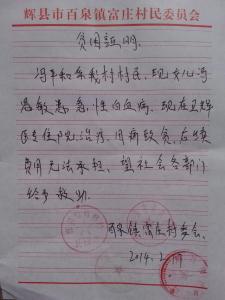 辉县市百泉镇富庄村民委员会
贫困証明
冯平和系我村村民，现女儿冯
思敏患急性白血病，现在卫辉
医专住院治疗，因病致贫，后续
费用无法承担，望社会各部门
给予救助
百泉镇富庄村委会
2014.2.